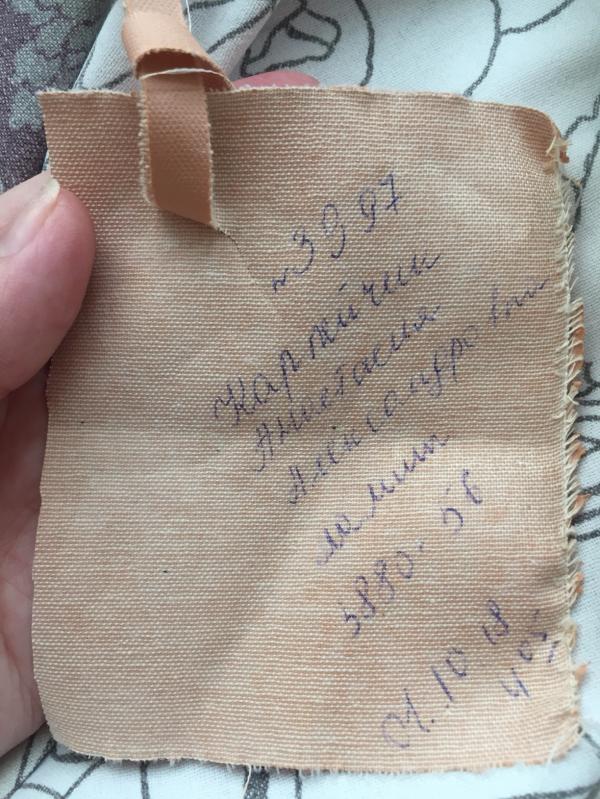 № 3997
Карпейчик
Анастасия
Александровна
3880 - 56
01.10.18
4 05